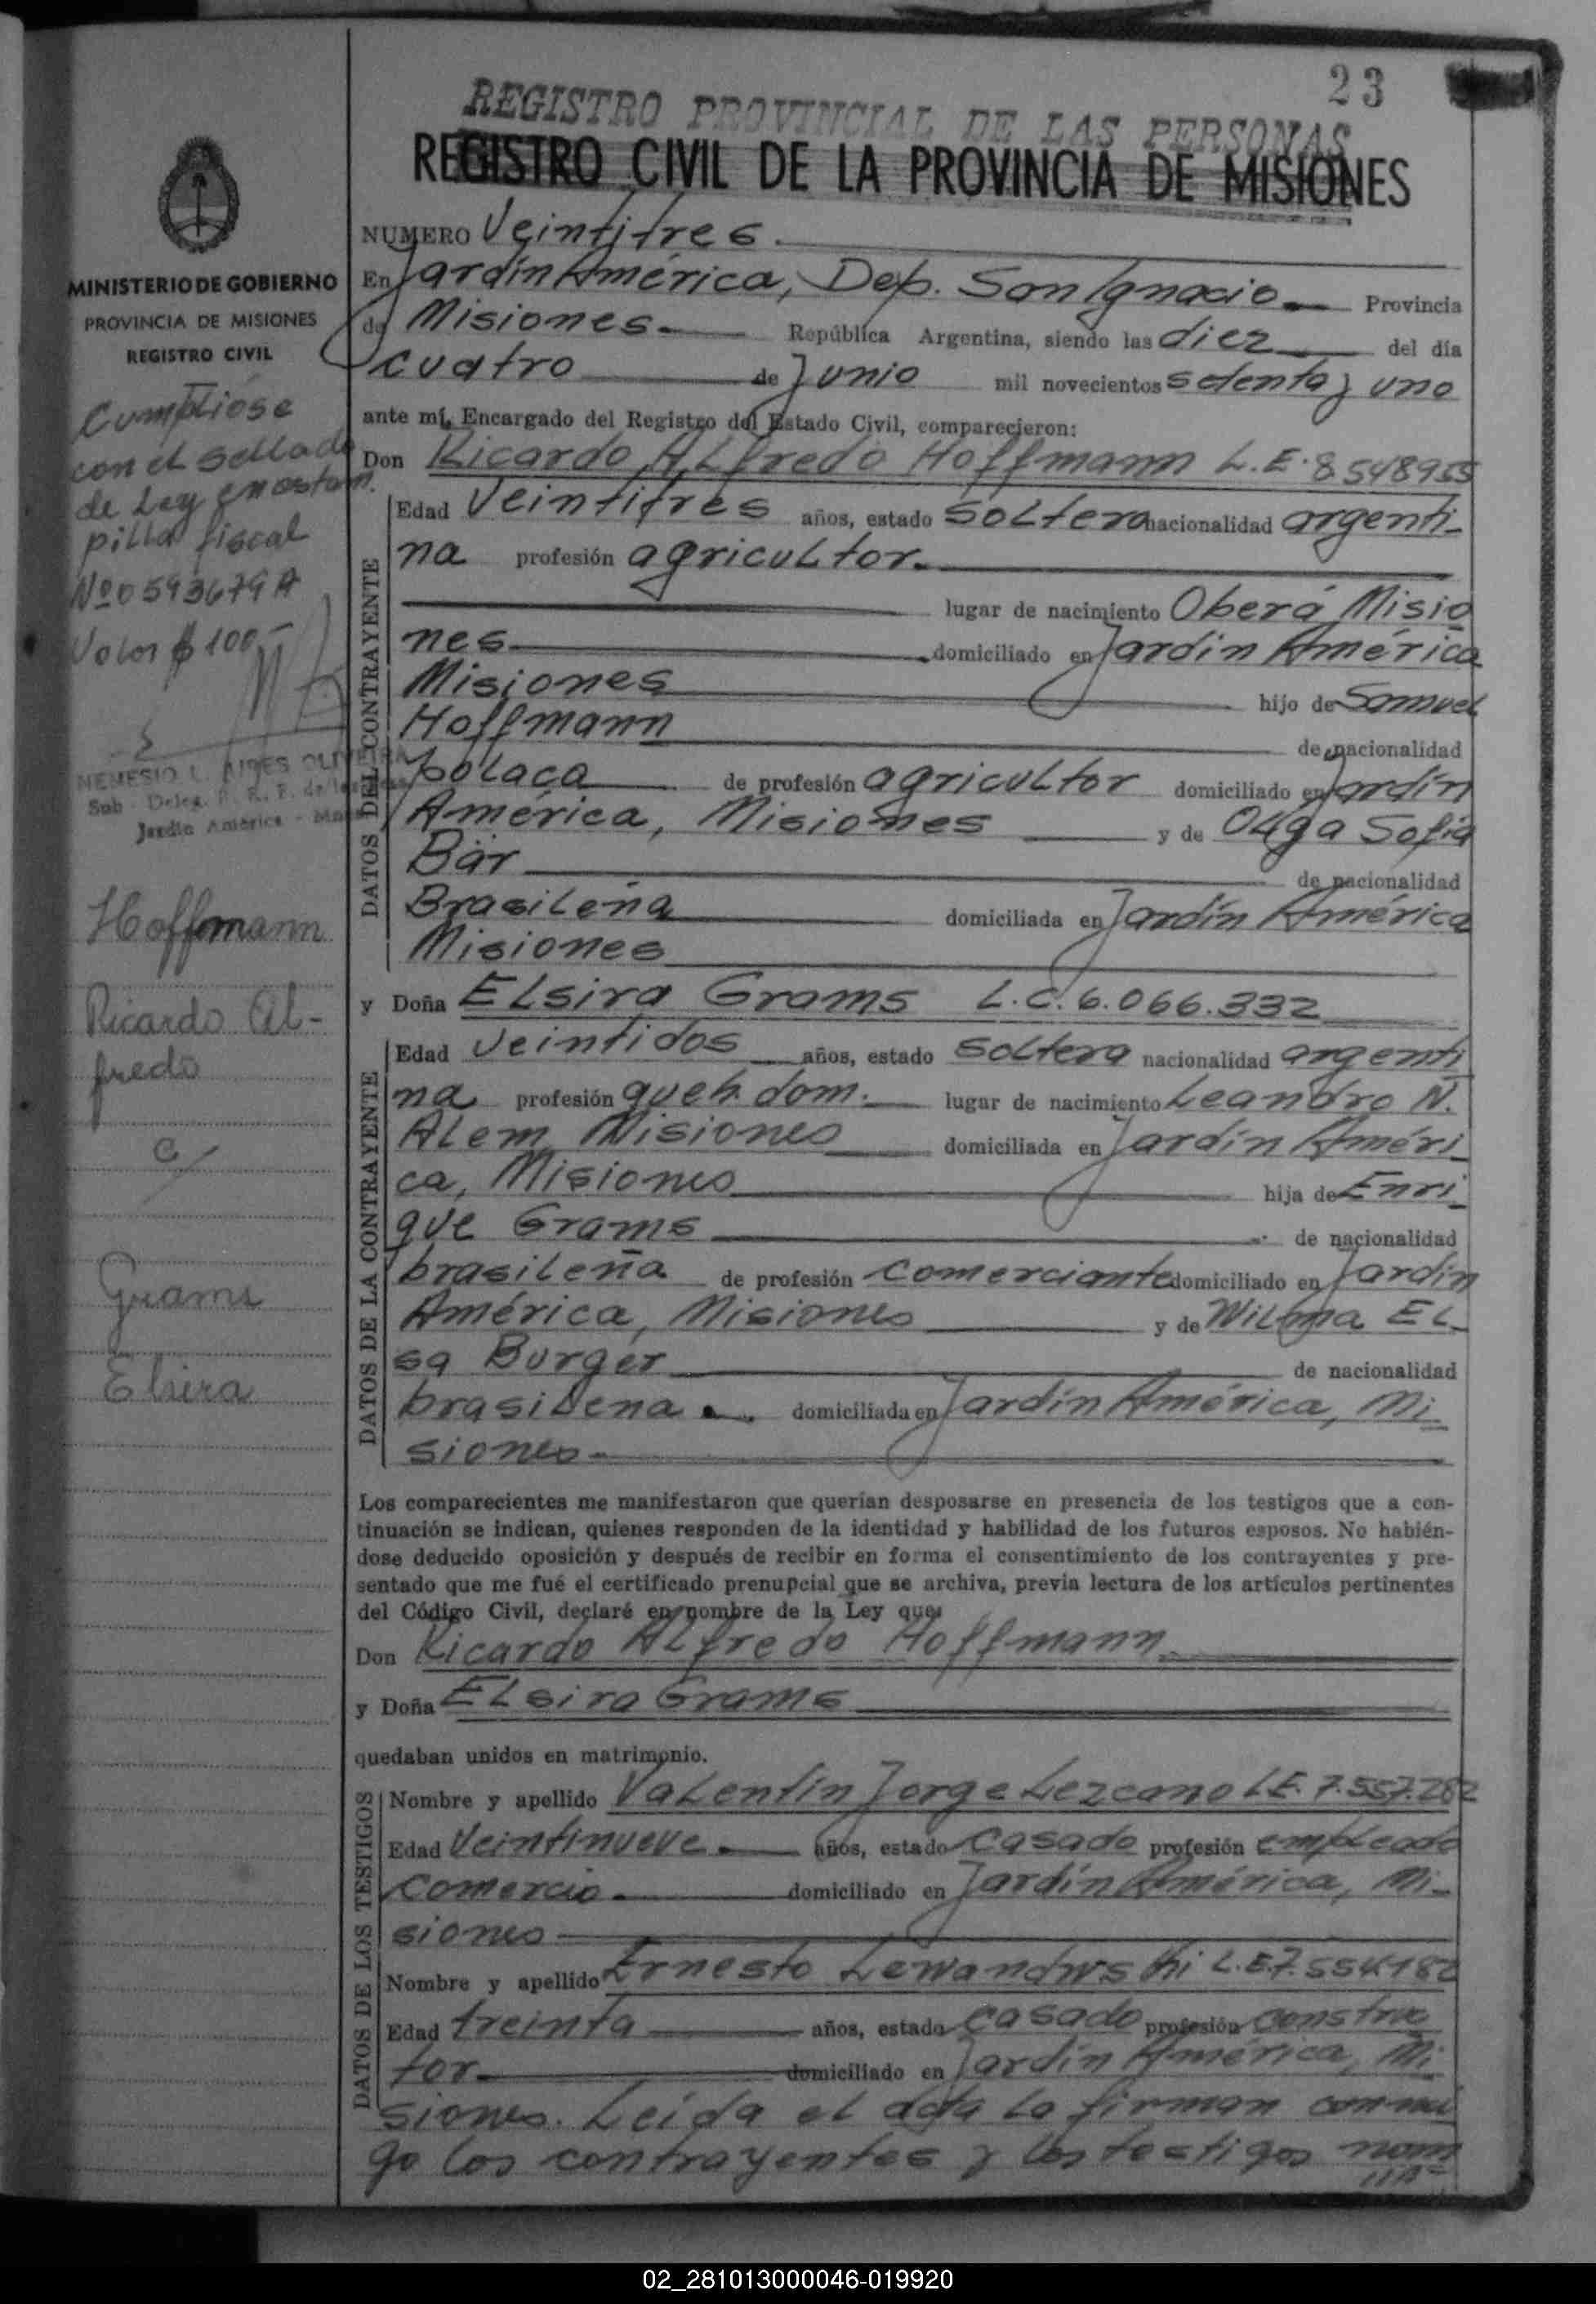 23
REGISTRO PROVINCIAL DE LAS PERSONAS
REGISTRO CIVIL DE LA PROVINCIA DE MISIONES
MINISTERIO DE GOBIERNO
PROVINCIA DE MISIONES
REGISTRO CIVIL
Cumplióse
con el sellado
de Ley en estam
pilla fiscal
Nº 0593679 A
Valor $ 100,-
NEMESIO L. AIRES OLIVEIRA
Sub - Deleg. R. P. P. de las
Jardín América - Mnes
Hoffmann
Ricardo Al-
fredo
c/
Grams
Elsira
NUMERO Veintitres.
En Jardín América, Dep. San Ignacio Provincia
de Misiones. República Argentina, siendo las diez del día
cuatro de Junio mil novecientos setenta y uno
ante mí, Encargado del Registro del Estado Civil, comparecieron:
Don Ricardo Alfredo Hoffmann L.E. 8548955
DATOS DEL CONTRAYENTE
Edad Veintitres años, estado soltero nacionalidad argenti-
na profesión agricultor.
lugar de nacimiento Oberá Misio
nes domiciliado en Jardín América
Misiones hijo de Samuel
Hoffmann de nacionalidad
polaca de profesión agricultor domiciliado en Jardín
América, Misiones y de Olga Sofía
Bär de nacionalidad
Brasileña domiciliada en Jardín América
Misiones
y Doña Elsira Grams L.C. 6.066.332
DATOS DE LA CONTRAYENTE
Edad Veintidos años, estado soltera nacionalidad argenti
na profesión queh. dom. lugar de nacimiento Leandro N.
Alem Misiones domiciliada en Jardín Améri-
ca, Misiones hija de Enri
que Grams de nacionalidad
brasileña de profesión comerciante domiciliado en Jardín
América, Misiones y de Wilma El-
sa Burger de nacionalidad
brasilena domiciliada en Jardín América, Mi
siones-
Los comparecientes me manifestaron que querían desposarse en presencia de los testigos que a con-
tinuación se indican, quienes responden de la identidad y habilidad de los futuros esposos. No habién-
dose deducido oposición y después de recibir en forma el consentimiento de los contrayentes y pre-
sentado que me fué el certificado prenupcial que se archiva, previa lectura de los artículos pertinentes
del Código Civil, declaré en nombre de la Ley que:
Don Ricardo Alfredo Hoffmann
y Doña Elsira Grams
quedaban unidos en matrimonio.
DATOS DE LOS TESTIGOS
Nombre y apellido Valentín Jorge Lezcano L.E. 7.557.282
Edad Veintinueve años, estado casado profesión empleado
comercio. domiciliado en Jardín América, Mi-
siones
Nombre y apellido Ernesto Lewandwski L.E. 7.554.182
Edad treinta años, estado casado profesión construc
tor. domiciliado en Jardín América, Mi
siones. Leída el acta la firman conmi
go los contrayentes y los testigos nom